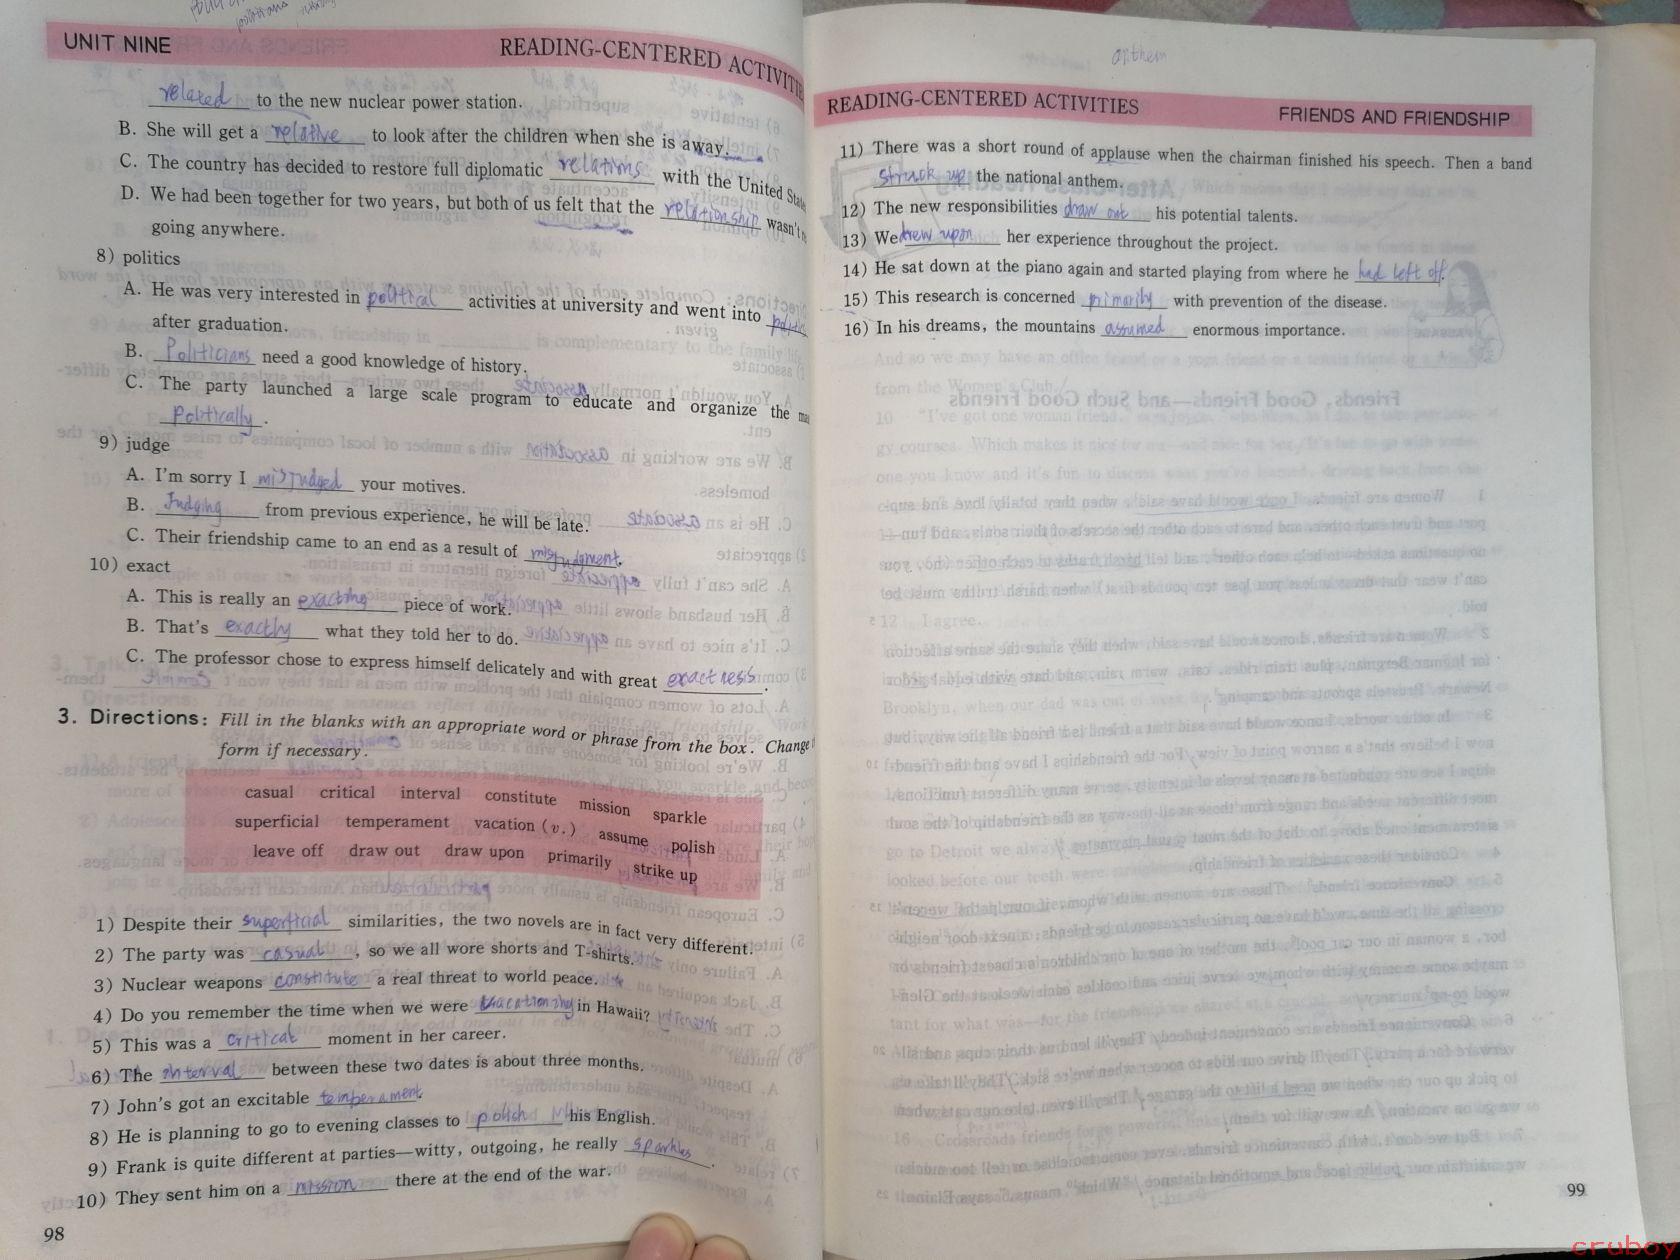 UNIT NINE READING-CENTERED ACTIVITIE
related to the new nuclear power station.
B. She will get a relative to look after the children when she is away.
C. The country has decided to restore full diplomatic relations with the United State
D. We had been together for two years, but both of us felt that the relationship wasn't
going anywhere.
8) politics
A. He was very interested in political activities at university and went into
after graduation.
B. Politicians need a good knowledge of history.
C. The party launched a large scale program to educate and organize the
politically.
9) judge
A. I'm sorry I misjudged your motives.
B. Judging from previous experience, he will be late.
C. Their friendship came to an end as a result of misjudgment.
10) exact
A. This is really an exacting piece of work.
B. That's exactly what they told her to do.
C. The professor chose to express himself delicately and with great
3. Directions: Fill in the blanks with an appropriate word or phrase from the box. Change
form if necessary.
casual critical interval constitute mission sparkle
superficial temperament vacation (v.) assume polish
leave off draw out draw upon primarily strike up
1) Despite their superficial similarities, the two novels are in fact very different.
2) The party was casual, so we all wore shorts and T-shirts.
3) Nuclear weapons constitute a real threat to world peace.
4) Do you remember the time when we were in Hawaii?
5) This was a critical moment in her career.
6) The interval between these two dates is about three months.
7) John's got an excitable temperament.
8) He is planning to go to evening classes to polish his English.
9) Frank is quite different at parties—witty, outgoing, he really sparkles.
10) They sent him on a mission there at the end of the war.
98
anthem
READING-CENTERED ACTIVITIES FRIENDS AND FRIENDSHIP
11) There was a short round of applause when the chairman finished his speech. Then a band
struck up the national anthem.
12) The new responsibilities draw out his potential talents.
13) We drew upon her experience throughout the project.
14) He sat down at the piano again and started playing from where he had left off.
15) This research is concerned primarily with prevention of the disease.
16) In his dreams, the mountains assumed enormous importance.
99
cruboy